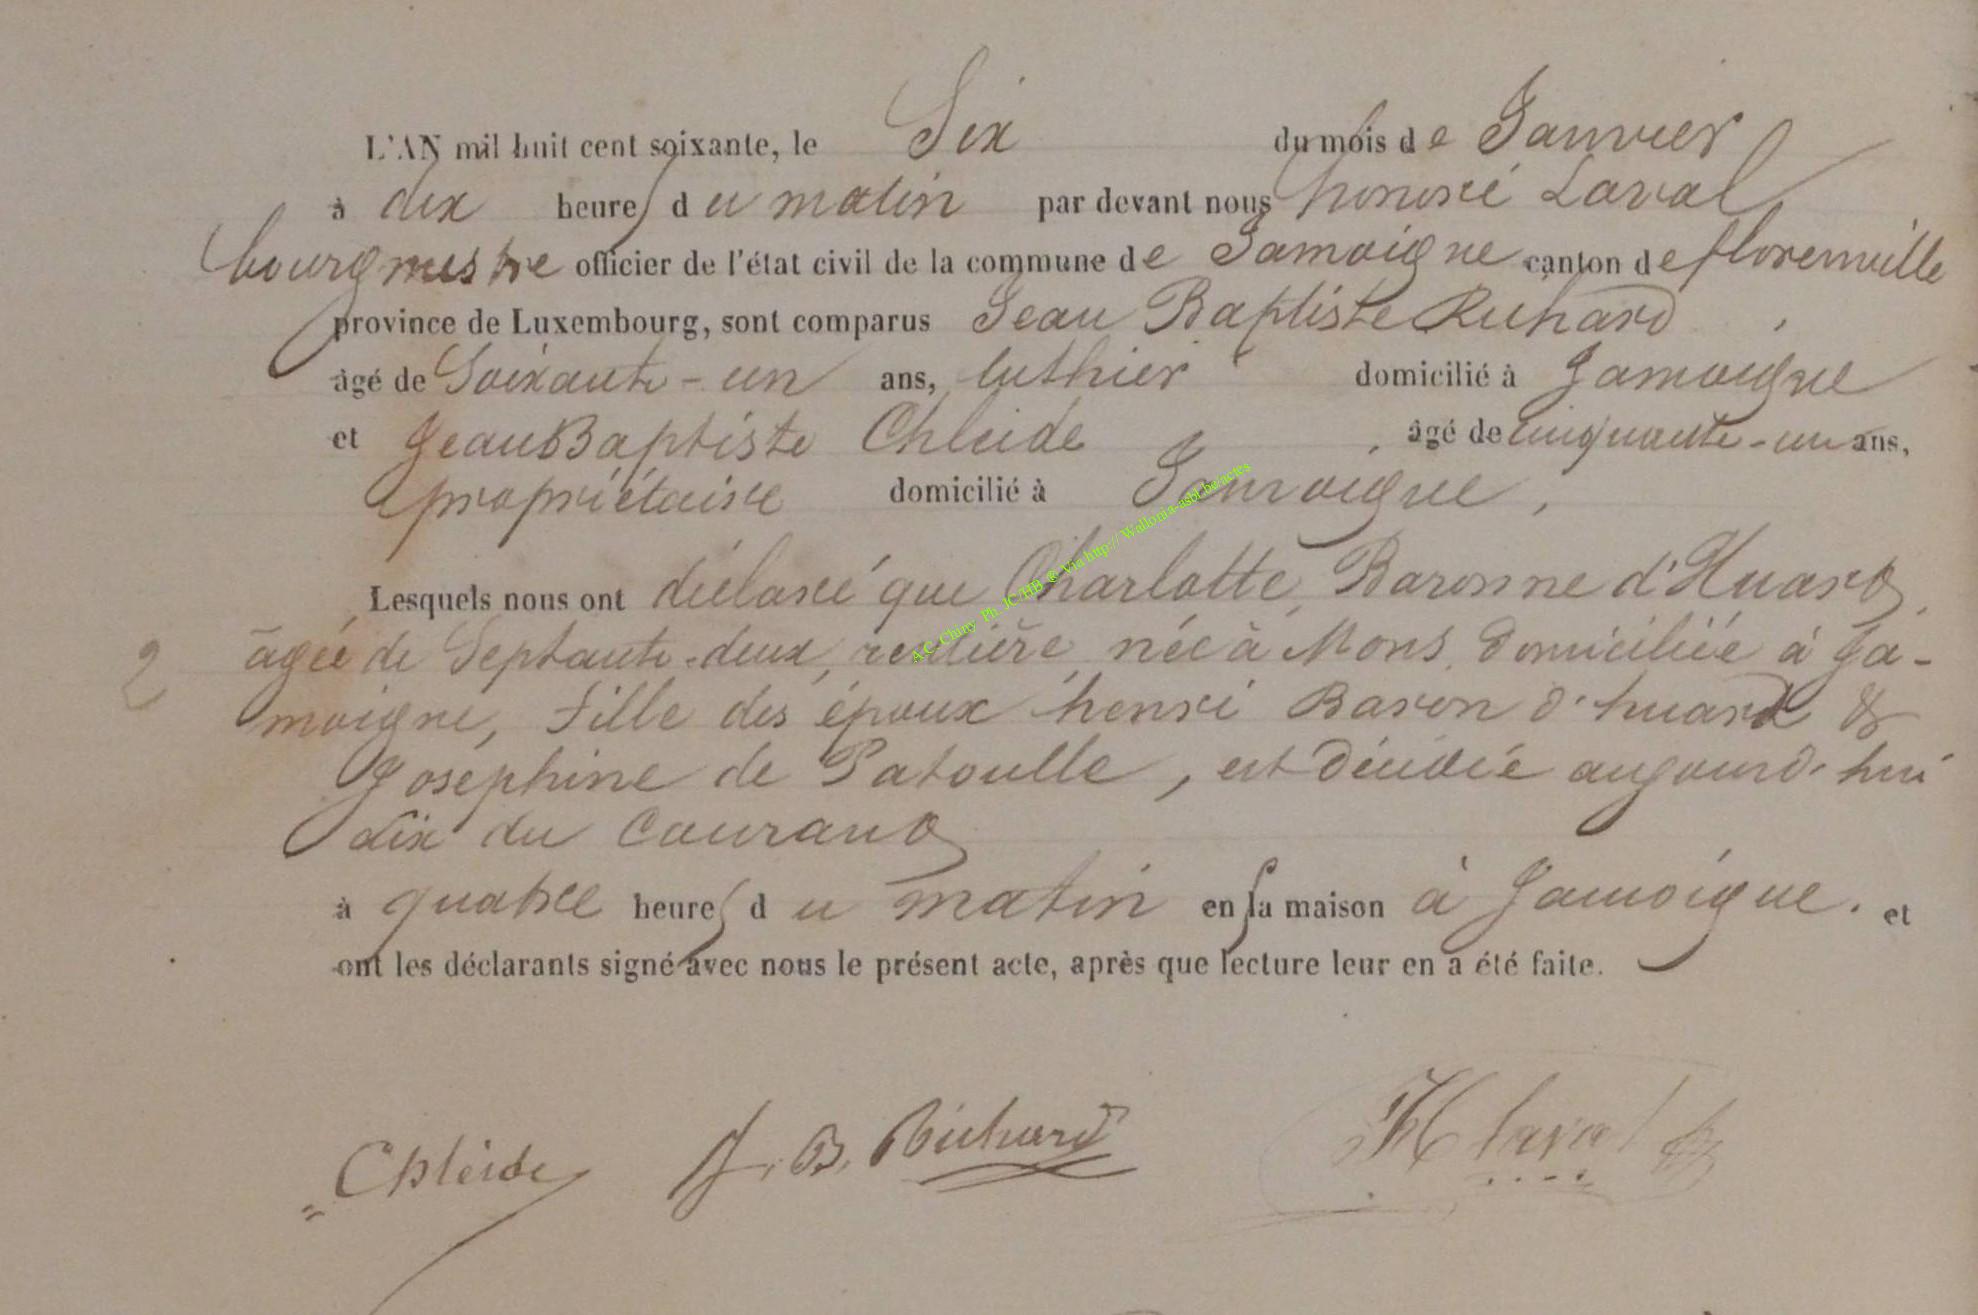 L'AN mil huit cent soixante, le Six du mois de Janvier
à dix heures du matin par devant nous honoré Laval
bourgmestre officier de l'état civil de la commune de Jamoigne canton de florenville
province de Luxembourg, sont comparus Jean Baptiste Richard,
âgé de Soixante-un ans, luthier domicilié à Jamoigne
et Jean Baptiste Chleide, âgé de cinquante-un ans,
propriétaire domicilié à Jamoigne,
Lesquels nous ont déclaré que Charlotte, Baronne d'Huart,
2 âgée de Septante-deux, rentière, née à Mons, domiciliée à Ja-
moigne, fille des époux henri Baron d'huart &
Joséphine de Patoulle, est décédée aujourd'hui
Six du Courant
à quatre heures du matin en sa maison à Jamoigne. et
ont les déclarants signé avec nous le présent acte, après que lecture leur en a été faite.
Chleide J. B. Richard H Laval
A.C. Chiny Ph. JC/HB ® Via http://Wallonia-asbl.be/actes